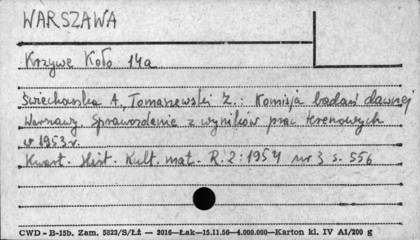 WARSZAWA
Krzywe Koło 14a
Świechowska A., Tomaszewski Z.: Komisja badań dawnej
Warszawy. Sprawozdanie z wyników prac terenowych
w 1953 r.
Kwart. Hist. Kult. mat. R. 2: 1954 nr 3 s. 556
CWD - B-15b, Zam. 5823/S/Łż — 3016—Łak—15.11.56—4.000.000—Karton kl. IV A1/200 g